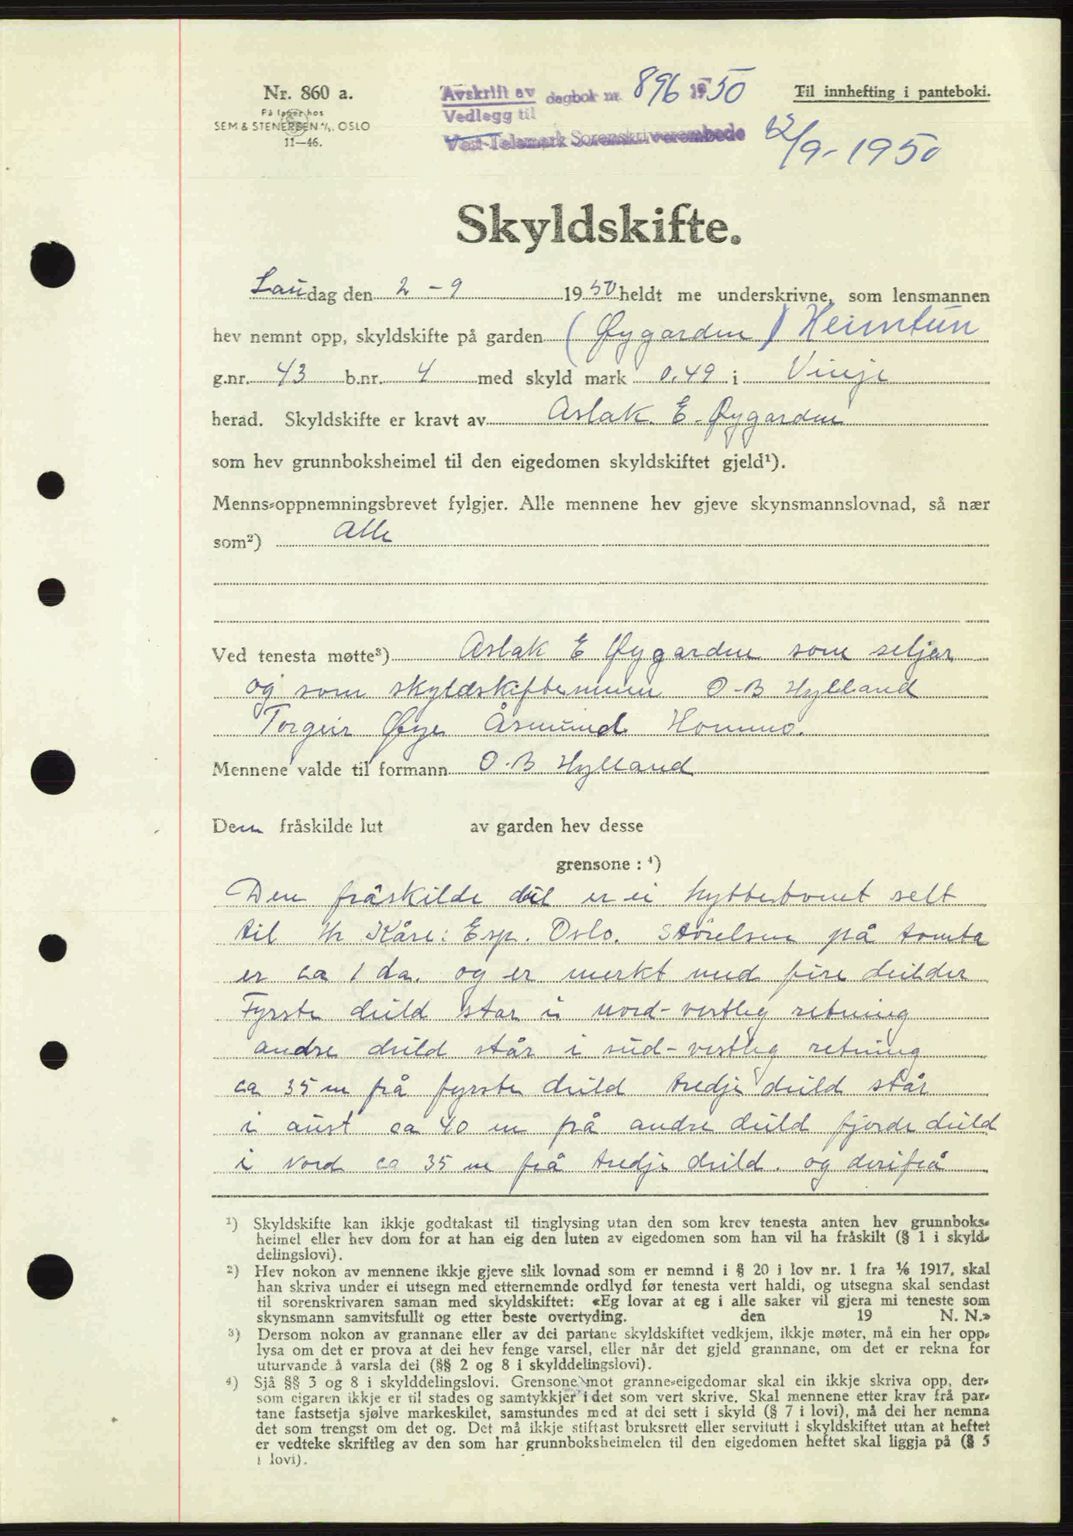 Nr. 860 a.
På lager hos
SEM & STENERSEN A/S. OSLO
11—46.
Avskrift av dagbok nr. 896 1950
Vedlegg til
Vest-Telemark Sorenskriverembede
Til innhefting i panteboki.
12/9-1950
Skyldskifte.
Laudag den 2-9 1950 heldt me underskrivne, som lensmannen
hev nemnt opp, skyldskifte på garden (Øygarden) Heimtun
g.nr. 43 b.nr. 4 med skyld mark 0.49 i Vinje
herad. Skyldskifte er kravt av Aslak. E. Øygarden
som hev grunnboksheimel til den eigedomen skyldskiftet gjeld¹).
Menns-oppnemningsbrevet fylgjer. Alle mennene hev gjeve skynsmannslovnad, så nær
som²) Alle
Ved tenesta møtte³) Aslak E Øygarden som seljar
og som skyldskiftesmenn O.B Hylland
Torgeir Øye Åsmund Hommo.
Mennene valde til formann O.B Hylland
Den fråskilde lut av garden hev desse
grensone : ⁴)
Den fråskilde del er ei hyttetomt selt
til Hr Kåre: Esp. Oslo. Størelsen på tomta
er ca 1 da. og er merkt med fire deilder
Fyrste deild star i nord-vestleg retning
andre deild står i sud-vestleg retning
ca 35 m frå fyrste deild tredje deild står
i aust ca 40 m frå andre deild fjorde deild
i nord ca 35 m frå tredje deild. og derifrå
¹) Skyldskifte kan ikkje godtakast til tinglysing utan den som krev tenesta anten hev grunnboks-
heimel eller hev dom for at han eig den luten av eigedomen som han vil ha fråskilt (§ 1 i skyld-
delingslovi).
²) Hev nokon av mennene ikkje gjeve slik lovnad som er nemnd i § 20 i lov nr. 1 fra 1/6 1917, skal
han skriva under ei utsegn med etternemnde ordlyd før tenesta vert haldi, og utsegna skal sendast
til sorenskrivaren saman med skyldskiftet: «Eg lovar at eg i alle saker vil gjera mi teneste som
skynsmann samvitsfullt og etter beste overtyding. den 19 N. N.»
³) Dersom nokon av grannane eller av dei partane skyldskiftet vedkjem, ikkje møter, må ein her opp-
lysa om det er prova at dei hev fenge varsel, eller når det gjeld grannane, om det er rekna for
uturvande å varsla dei (§§ 2 og 8 i skylddelingslovi).
⁴) Sjå §§ 3 og 8 i skylddelingslovi. Grensone mot granne-eigedomar skal ein ikkje skriva opp, der-
som eigaren ikkje er til stades og samtykkjer i det som vert skrive. Skal mennene etter krav frå par-
tane fastsetja sjølve markeskilet, samstundes med at dei sett i skyld (§ 7 i lovi), må dei her nemna
det som trengst om det og. Det må ikkje stiftast bruksrett eller servitutt i skyldskiftet utan at heftet
er vedteke skriftleg av den som har grunnboksheimelen til den eigedomen heftet skal liggja på (§ 5
i lovi).